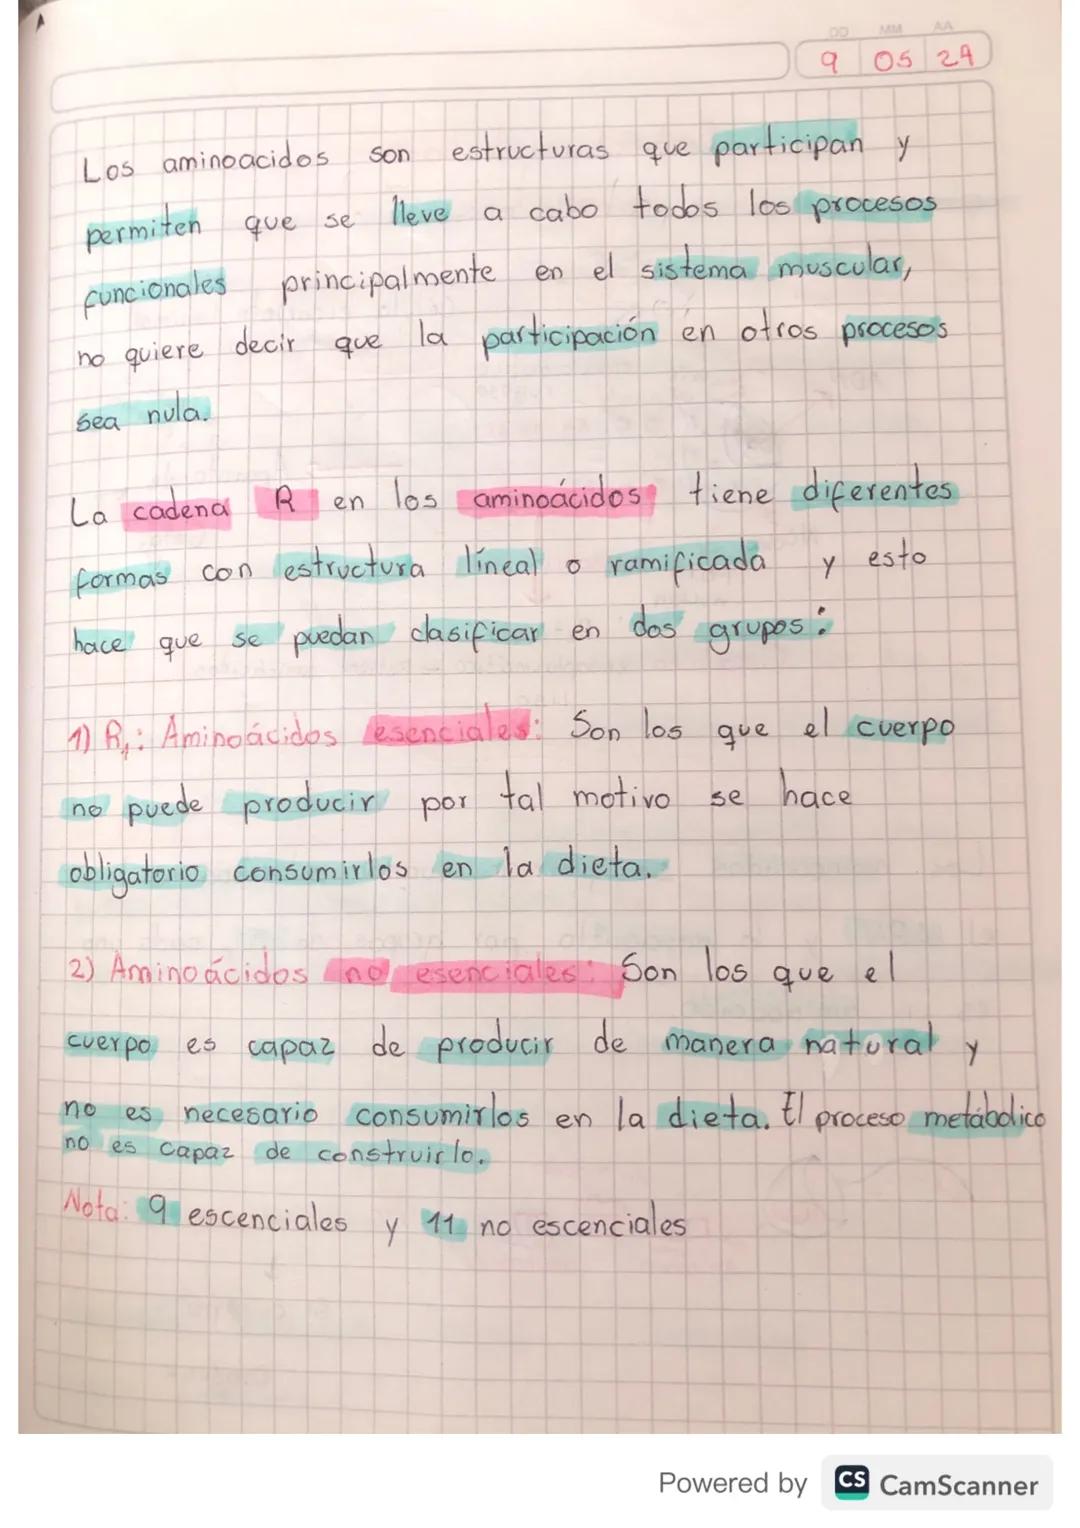 DD MM AA
9 05 24
Los aminoacidos son estructuras que participan y
permiten que se lleve a cabo todos los procesos
funcionales principalmente en el sistema muscular,
no quiere decir que la participación en otros procesos
sea nula.
La cadena R en los aminoácidos tiene diferentes
formas con estructura líneal o ramificada y esto
hace que se puedan clasificar en dos grupos:
1) R₁: Aminoácidos esenciales: Son los que el cuerpo
no puede producir por tal motivo se hace
obligatorio consumirlos en la dieta.
2) Aminoácidos no esenciales: Son los que el
cuerpo es capaz de producir de manera natural y
no es necesario consumirlos en la dieta. El proceso metabólico
no es capaz de construirlo.
Nota: 9 escenciales y 11 no escenciales
Powered by CS CamScanner